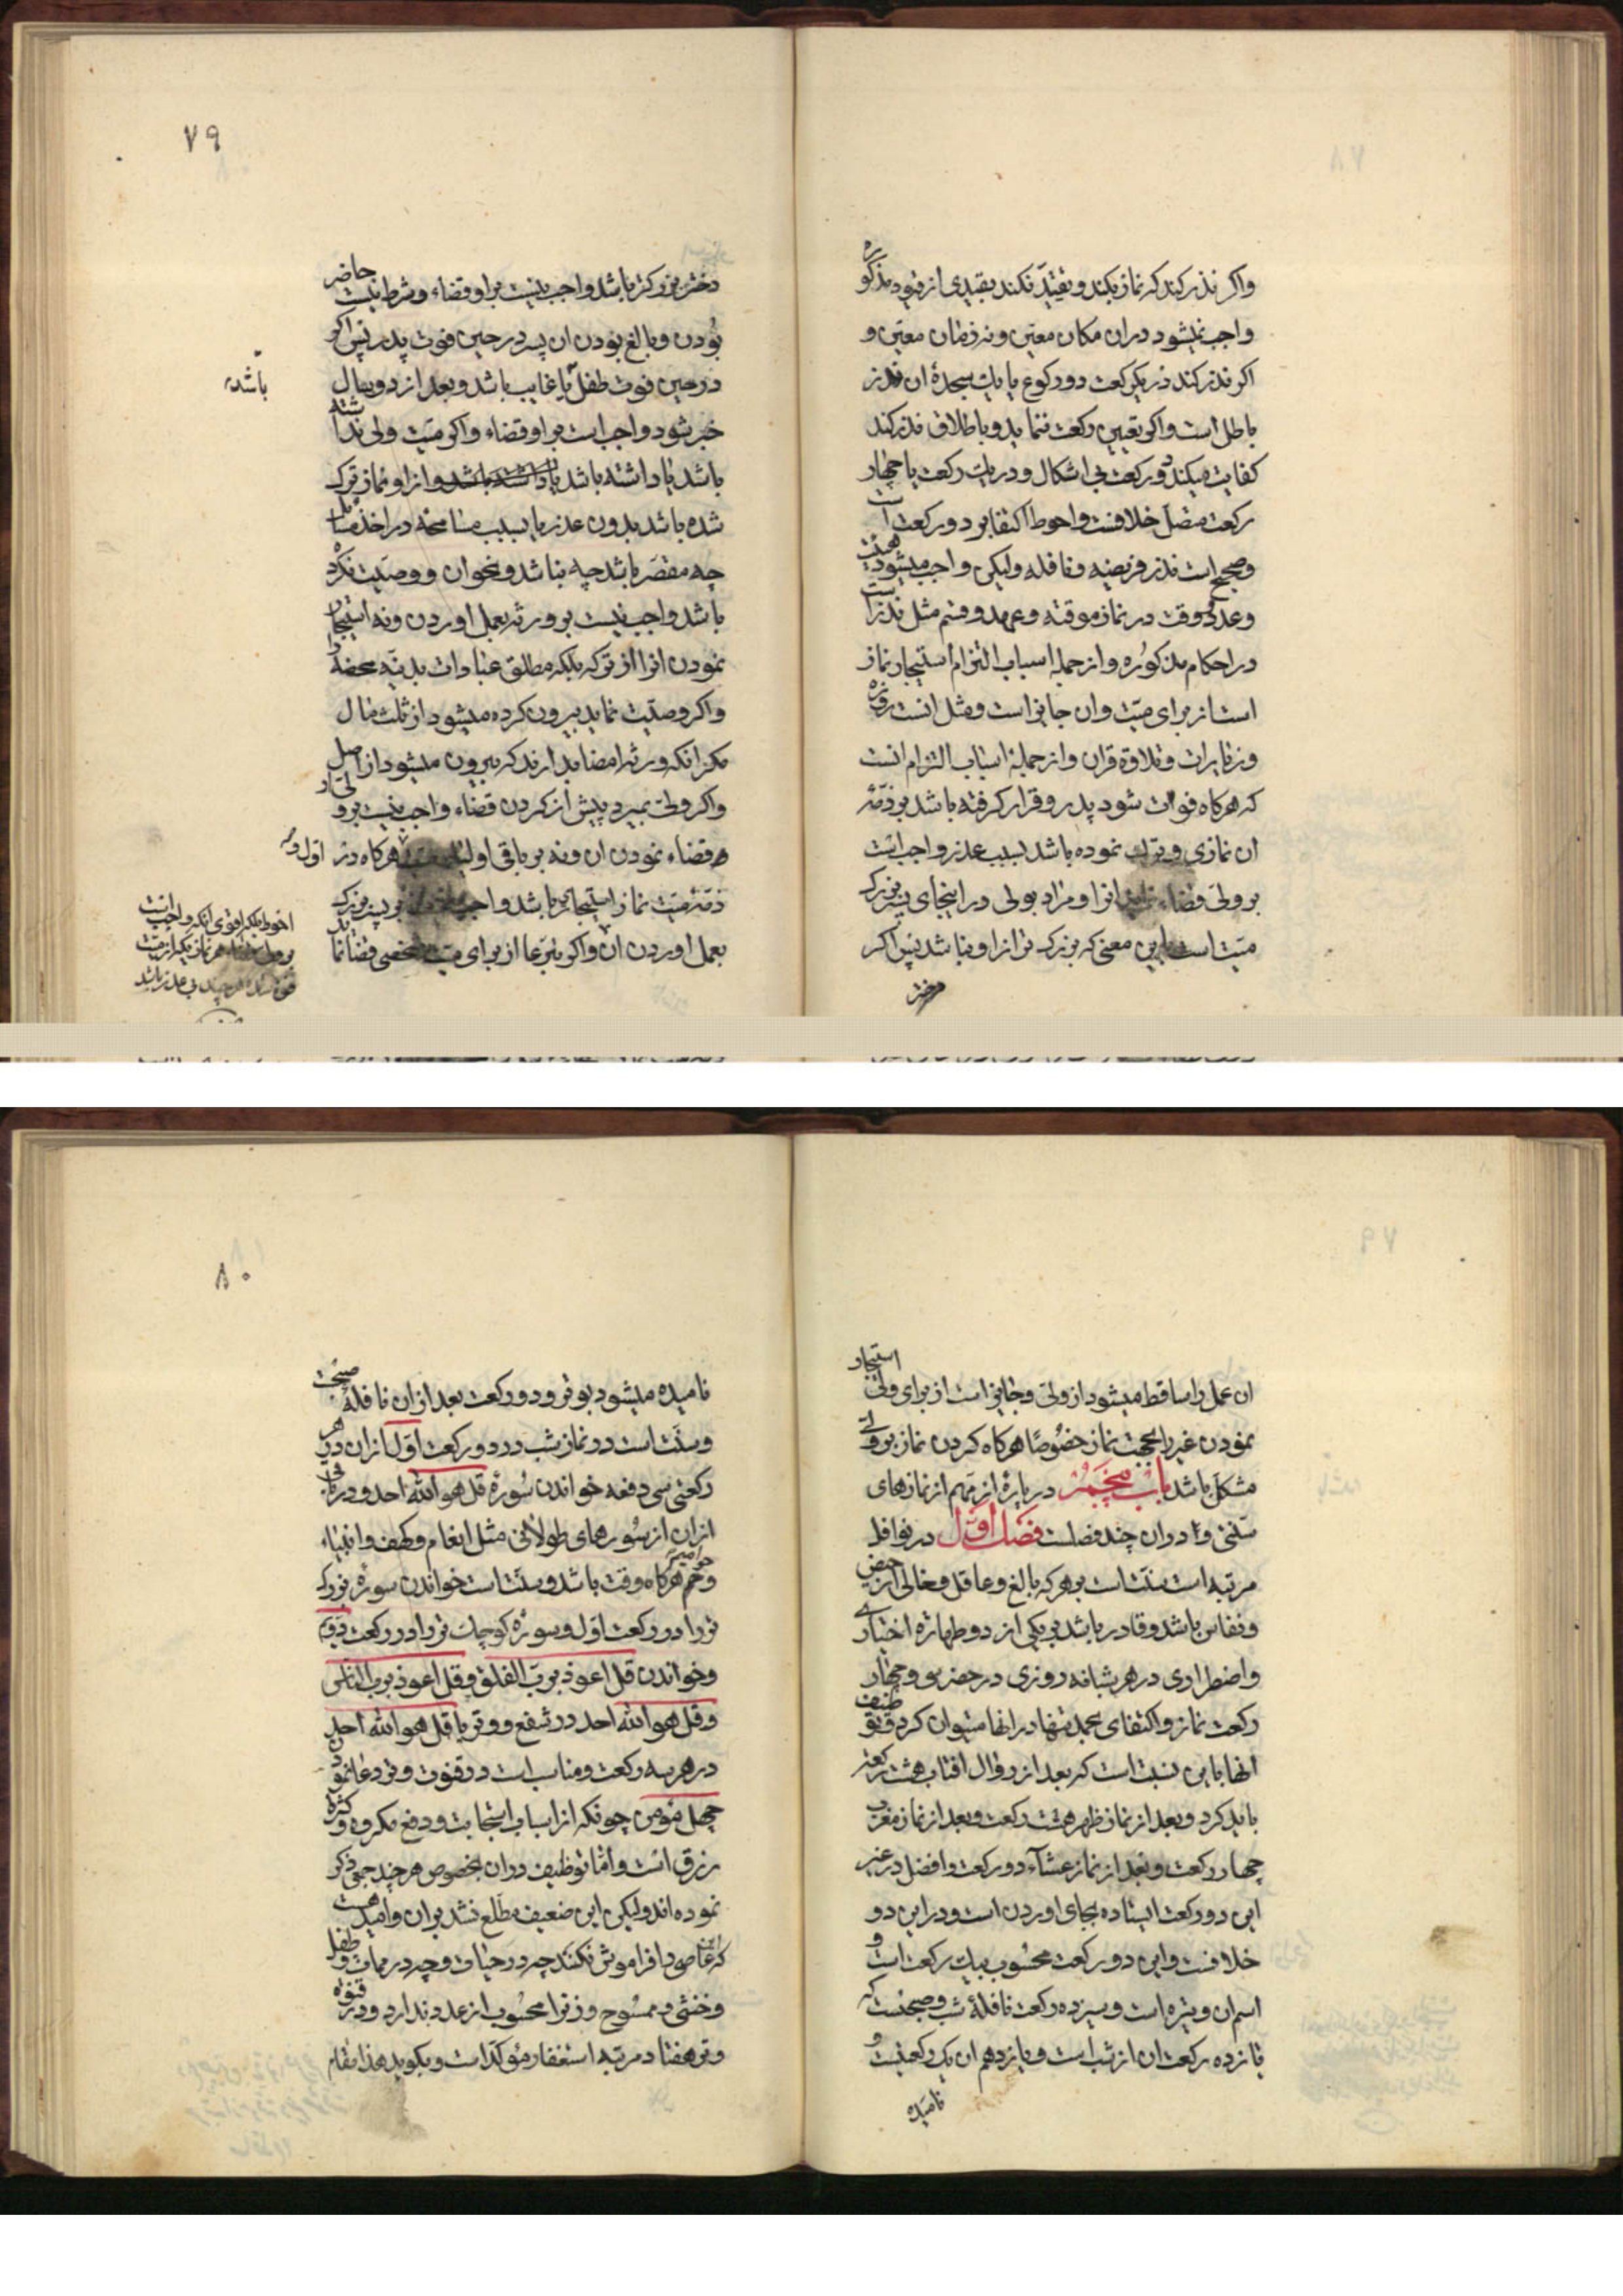 واکر نذر کند که نماز بکند و تقیّد نکند بقیدی از قیود مذکوره
واجب نمیشود در ان مکان معیّن و نه زمان معیّن و
اکر نذر کند در یکرکعت دو رکوع یا یک سجده ان نذر
باطل است و اکر تعیین رکعت ننماید و باطلاق نذر کند
کفایت میکند دو رکعت بی اشکال و در یک رکعت یا چهار
رکعت متصل خلافست و احوط اکتفا بر دو رکعت است
و صحیح است نذر فریضه و نافله ولیکن واجب میشود هیئت
و عدد و وقت در نماز موقته و عهد و قسم مثل نذر است
در احکام مذکوره و از جمله اسباب التزام استیجار نماز
است از برای میّت و ان جایز است و مثل انست روزه
و زیارات و تلاوة قران و از جمله اسباب التزام انست
که هرکاه فوات شود پدر و قرار کرفته باشد بر ذمّه
ان نمازی و ترک نموده باشد بسبب عذر واجب است
بر ولی قضاء انرا و مراد بولی در اینجای پسر بزرک
میّت است باین معنی که بزرک تر از او نباشد پس اکر
دختر
۷۹
دختر بزرکتر باشد واجب نیست بر او قضاء و شرط نیست حاضر
بودن و بالغ بودن ان پسر در حین فوت پدر پس اکر
در حین فوت طفل یا غایب باشد و بعد از دو سال
باشد
خبر شود واجب است بر او قضاء و اکر میّت ولی نداشته
باشد یا داشته باشد و از او نماز ترک
شده باشد بدون عذر یا بسبب مسامحه در اخذ مسایل
چه مقصّر باشد چه نباشد و نحو ان و وصیّت نکرده
باشد واجب نیست بر ورثه بعمل اوردن و نه استیجار
نمودن انرا از ترکه بلکه مطلق عبادات بدنیّه محضه را
و اکر وصیّت نماید بیرون کرده میشود از ثلث مال
مکر انکه ورثه امضا بدارند که بیرون میشود از اصل
و اکر ولی بمیرد پیش از کردن قضاء واجب نیست بر ولی او
قضاء نمودن ان و نه بر باقی اولیاء و هرکاه در
ذمّه میّت نماز استیجار باشد واجب بر پسر بزرک
بعمل اوردن ان و اکر تبرّعا از برای میّت شخصی قضا نماید
احوط بلکه اقوی انکه واجب است
بر ولی هر نماز یکه از میّت
فوت شده هر چند بی عذر باشد
ان عمل را ساقط میشود از ولی و جایز است از برای ولی استیجار
نمودن غیر را بجهت نماز خصوصًا هرکاه کردن نماز بر ولی
مشکل باشد باب پنجم در پاره از مهم از نمازهای
سنّتی و در ان چند فصلست فصل اول در نوافل
مرتبه است سنّت است بر هر که بالغ و عاقل و خالی از حیض
و نفاس باشد و قادر باشد بر یکی از دو طهارة اختیاری
و اضطراری در هر شبانه روزی در حضر سی و چهار
رکعت نماز و اکتفای بحمد تنها در انها میتوان کرد و توظیف
انها باین نسبت است که بعد از زوال افتاب هشت رکعت
باید کرد و بعد از نماز ظهر هشت رکعت و بعد از نماز مغرب
چهار رکعت و بعد از نماز عشآء دو رکعت و افضل در غیر
این دو رکعت ایستاده بجای اوردن است و در این دو
خلافست و این دو رکعت محسوب بیک رکعت است و
اسم ان وتیره است و سیزده رکعت نافله شب و صبح است که
یازده رکعت ان از شب است و یازدهم ان یک رکعتیست و
نامیده
۸۰
نامیده میشود بوتر و دو رکعت بعد از ان نافله صبح است
و سنّت است در نماز شب در دو رکعت اوّل از ان در هر
رکعتی سی دفعه خواندن سوره قل هو الله احد و در باقی
از ان از سورهای طولانی مثل انعام و کهف و انبیاء
و حوامیم هرکاه وقت باشد و سنّت است خواندن سوره بزرک
تر را در رکعت اوّل و سوره کوچک تر را در رکعت دوّیم
و خواندن قل اعوذ بربّ الفلق و قل اعوذ بربّ الناس
و قل هو الله احد در شفع و وتر یا قل هو الله احد
در هر سه رکعت و مناسب است در قنوت وتر دعا نمودن
چهل مؤمن چونکه از اسباب استجابت و دفع مکروه و کثرة
رزق است و امّا توظیف در ان بخصوص هر چند جمعی ذکر
نموده اند ولیکن این ضعیف مطّلع نشد بر ان و امید هست
که این عاصی را فراموش نکنند چه در حیات و چه در ممات و طفل
و خنثی و ممسوح و زنرا محسوب از عدد ندارد و در قنوة
وتر هفتاد مرتبه استغفار مؤکّد است و بکوید هذا مقام